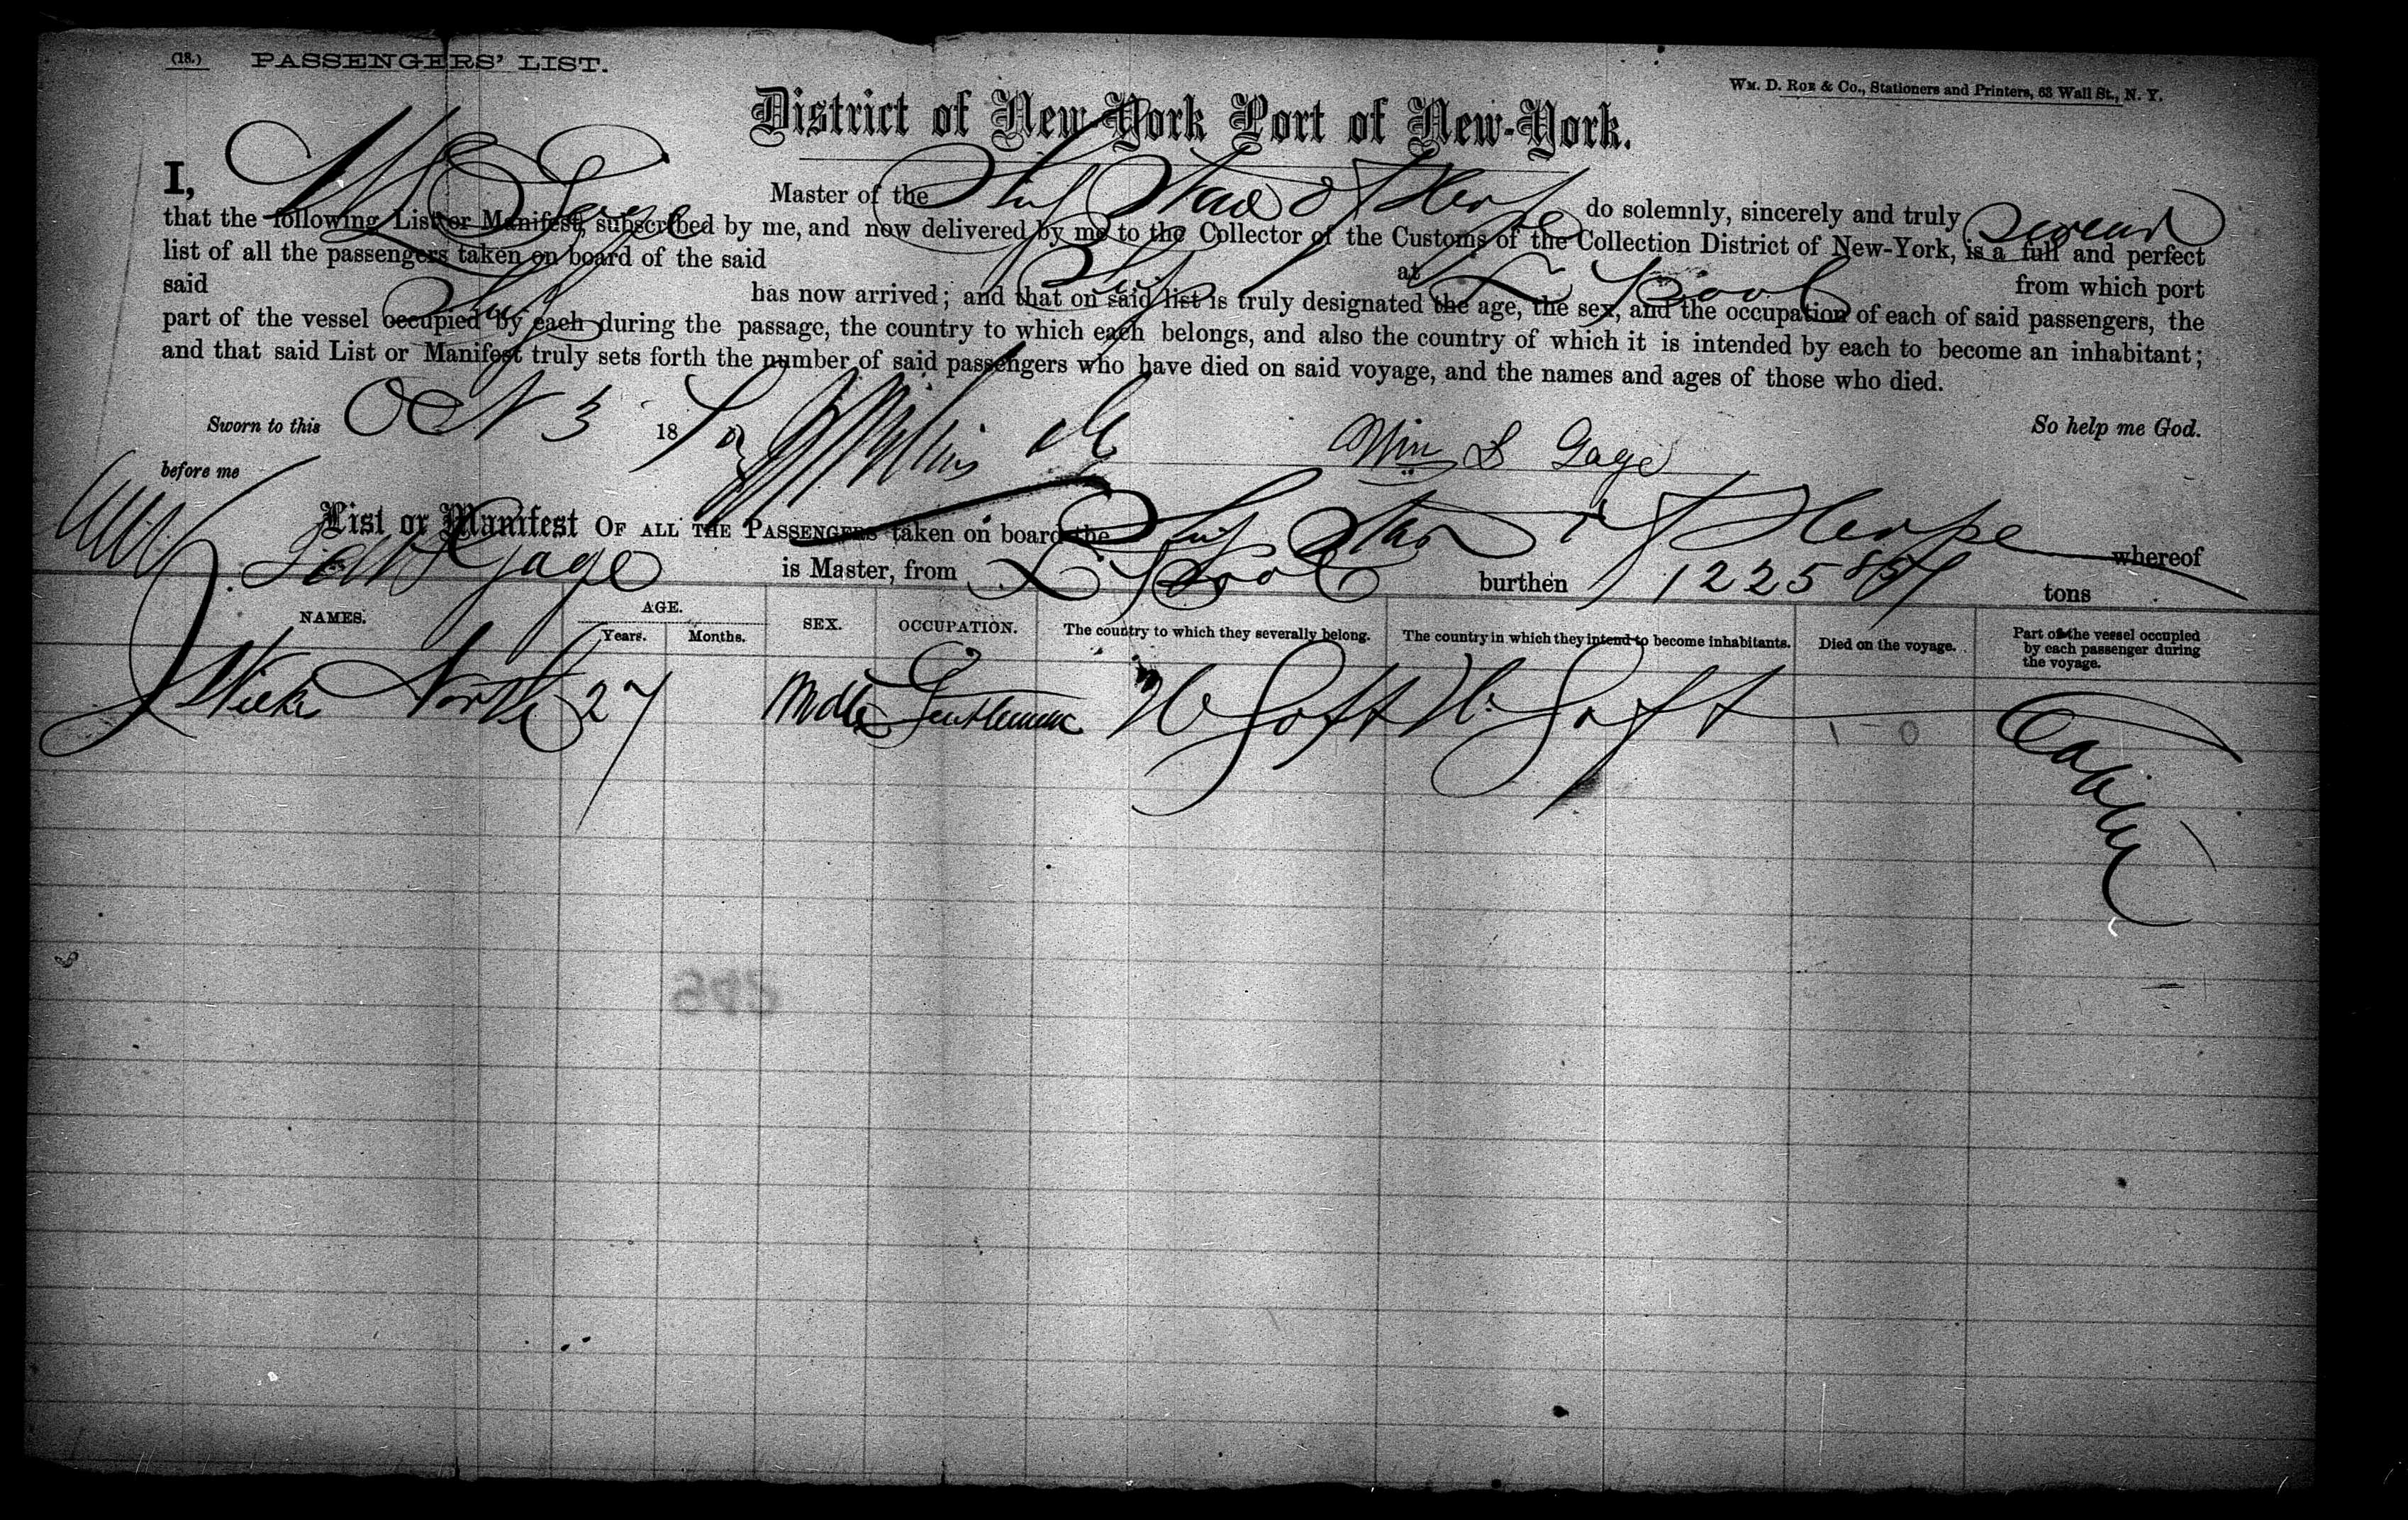 (18.) PASSENGERS' LIST.
WM. D. ROE & Co., Stationers and Printers, 63 Wall St., N. Y.
District of New-York Port of New-York.
I, Gage Master of the Ship Star of Hope do solemnly, sincerely and truly swear
that the following List or Manifest, subscribed by me, and now delivered by me to the Collector of the Customs of the Collection District of New-York, is a full and perfect
list of all the passengers taken on board of the said Ship at L Pool from which port
said Ship has now arrived; and that on said list is truly designated the age, the sex, and the occupation of each of said passengers, the
part of the vessel occupied by each during the passage, the country to which each belongs, and also the country of which it is intended by each to become an inhabitant;
and that said List or Manifest truly sets forth the number of said passengers who have died on said voyage, and the names and ages of those who died.
Sworn to this Oct 3 18 So help me God.
before me Wm L Gage
List or Manifest OF ALL THE PASSENGERS taken on board the Ship Star of Hope whereof
Gage is Master, from L Pool burthen 1225 tons
NAMES. AGE. Years. Months. SEX. OCCUPATION. The country to which they severally belong. The country in which they intend to become inhabitants. Died on the voyage. Part of the vessel occupied by each passenger during the voyage.
27 Gentleman 1 - 0 Cabin